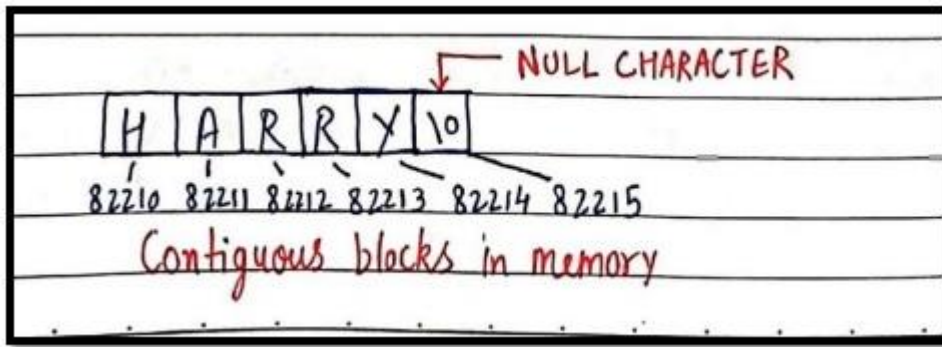 NULL CHARACTER
H A R R Y \0
82210 82211 82212 82213 82214 82215
Contiguous blocks in memory